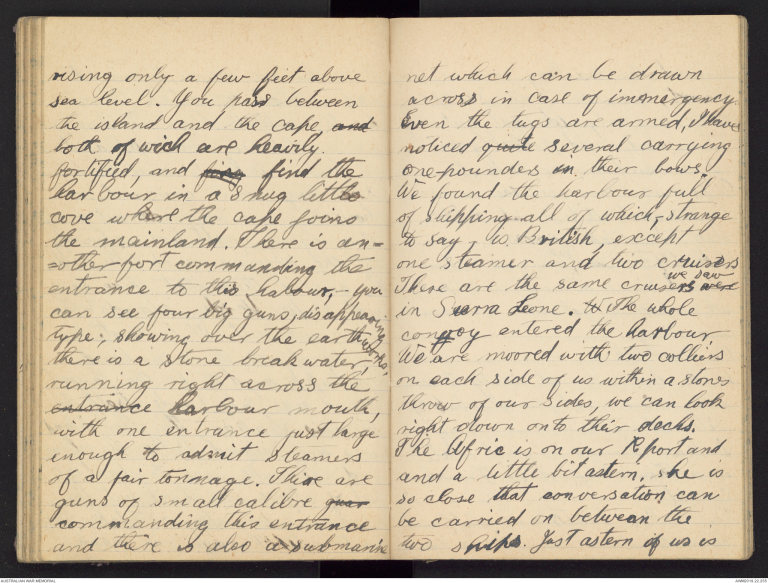 rising only a few feet above
sea level. You pass between
the island and the cape, and
both of wich are heavily
fortified, and find the
harbour in a snug little
cove where the cape joins
the mainland. There is an=
=other fort commanding the
entrance to this habour, - you
can see four big guns, disappearing
type, showing over the earth works,
there is a stone breakwater,
running right across the
entrance harbour mouth,
with one entrance just large
enough to admit steamers
of a fair tonnage. There are
guns of small calibre guar
commanding this entrance
and there is also a submarine
net which can be drawn
across in case of immergency.
Even the tugs are armed, I have
noticed quite several carrying
one-pounders in their bows.
We found the harbour full
of shipping all of which, strange
to say, is British, except
one steamer and two cruisers
These are the same cruisers were we saw
in Sierra Leone. The whole
convoy entered the harbour
We are moored with two colliers
on each side of us within a stones
throw of our sides, we can look
right down onto their decks.
The Afric is on our R port and
and a little bit astern, she is
so close that conversation can
be carried on between the
two ships. Just astern of us is
AUSTRALIAN WAR MEMORIAL